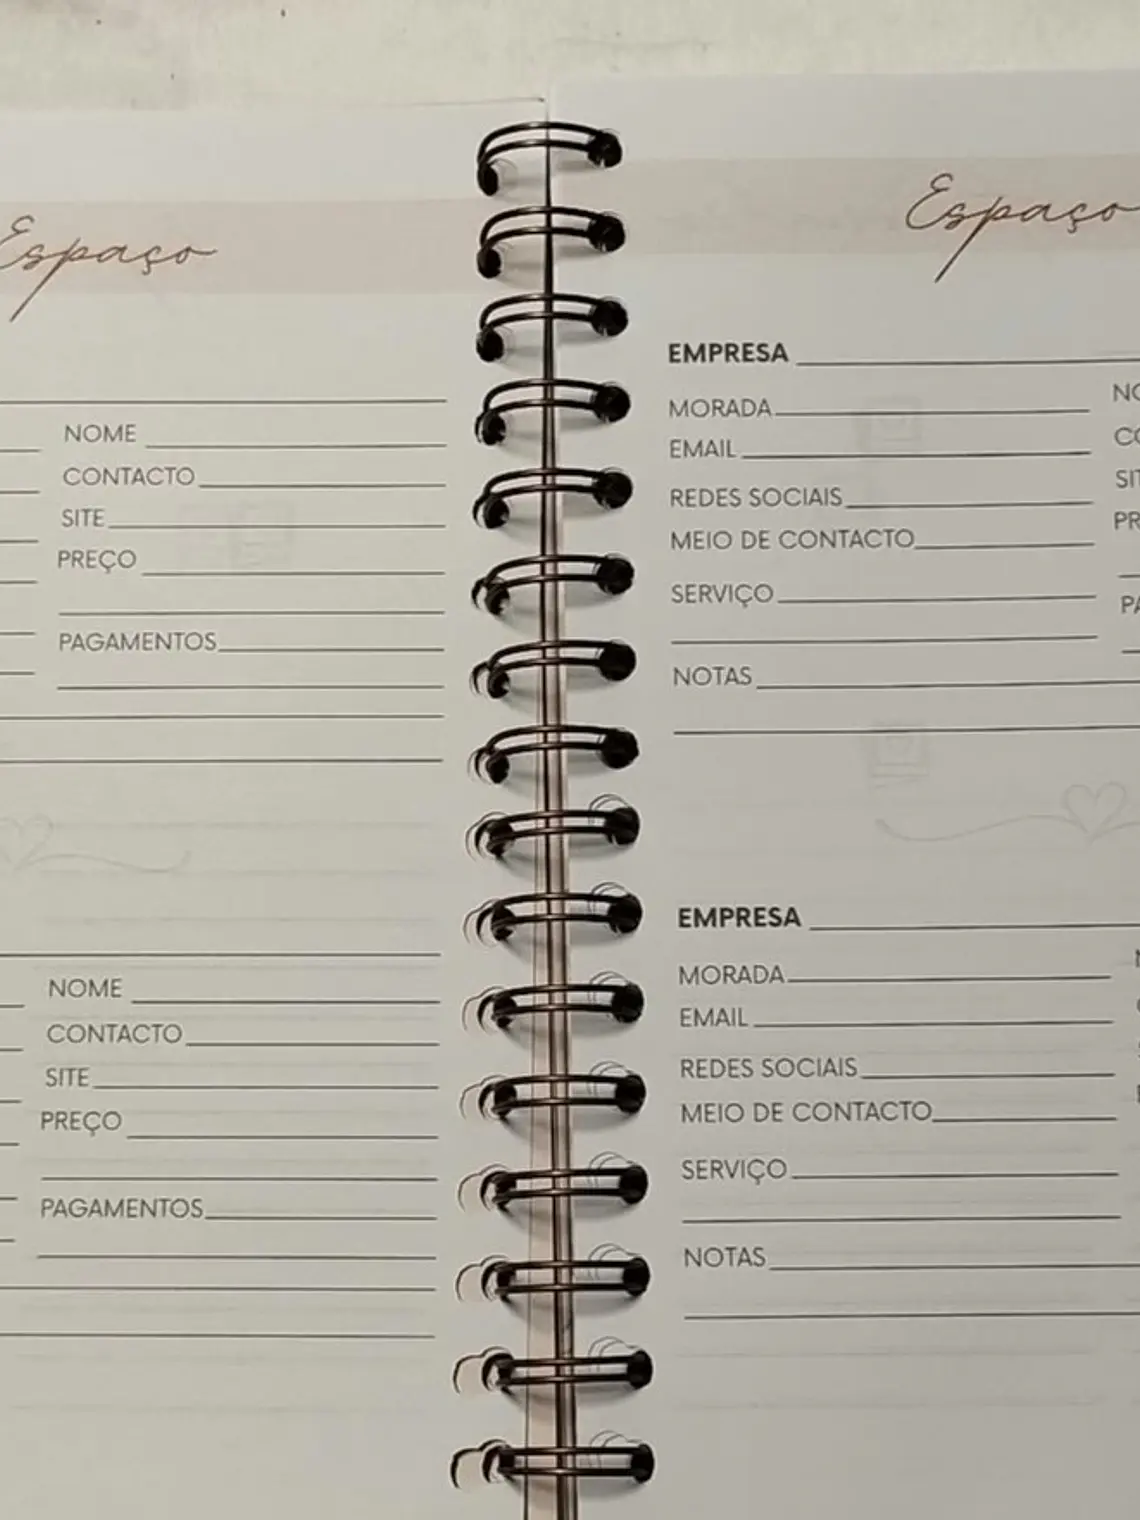 Espaço
NOME
CONTACTO
SITE
PREÇO
PAGAMENTOS
NOME
CONTACTO
SITE
PREÇO
PAGAMENTOS
Espaço
EMPRESA
MORADA
EMAIL
REDES SOCIAIS
MEIO DE CONTACTO
SERVIÇO
NOTAS
EMPRESA
MORADA
EMAIL
REDES SOCIAIS
MEIO DE CONTACTO
SERVIÇO
NOTAS